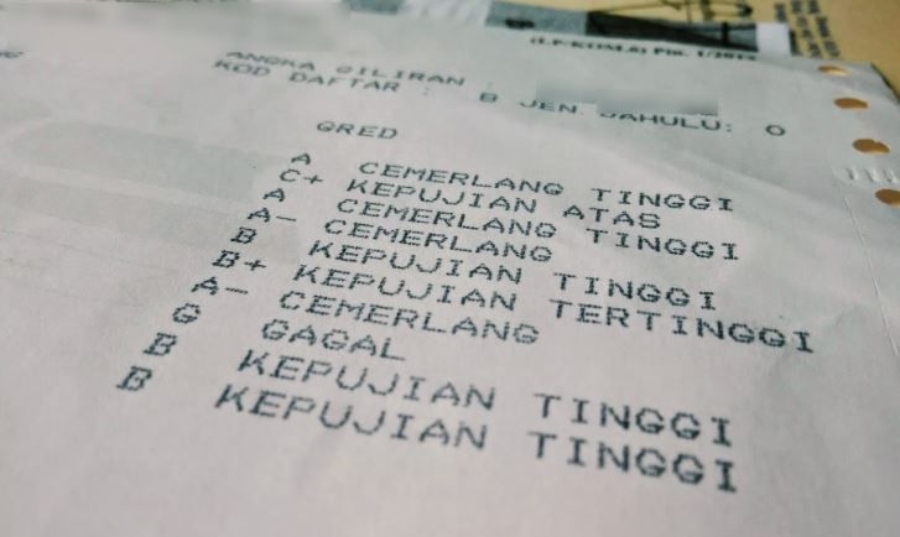 (LP-KOM.6) Pin. 1/2014
ANGKA GILIRAN :
KOD DAFTAR : B JEN. DAHULU: 0
GRED
A CEMERLANG TINGGI
C+ KEPUJIAN ATAS
A CEMERLANG TINGGI
A- CEMERLANG
B KEPUJIAN TINGGI
B+ KEPUJIAN TERTINGGI
A- CEMERLANG
G GAGAL
B KEPUJIAN TINGGI
B KEPUJIAN TINGGI